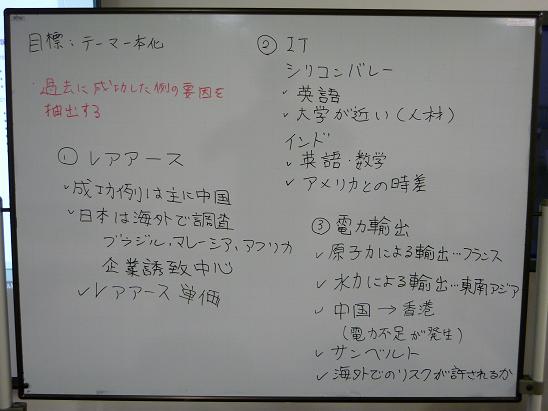 目標：テーマ一本化
・過去に成功した例の要因を
抽出する
① レアアース
✓成功例は主に中国
✓日本は海外で調査
ブラジル、マレーシア、アフリカ
企業誘致中心
✓レアアース単価
② IT
シリコンバレー
✓英語
✓大学が近い(人材)
インド
✓英語・数学
✓アメリカとの時差
③ 電力輸出
✓原子力による輸出…フランス
✓水力による輸出…東南アジア
✓中国→香港
(電力不足が発生)
✓サンベルト
✓海外でのリスクが許されるか